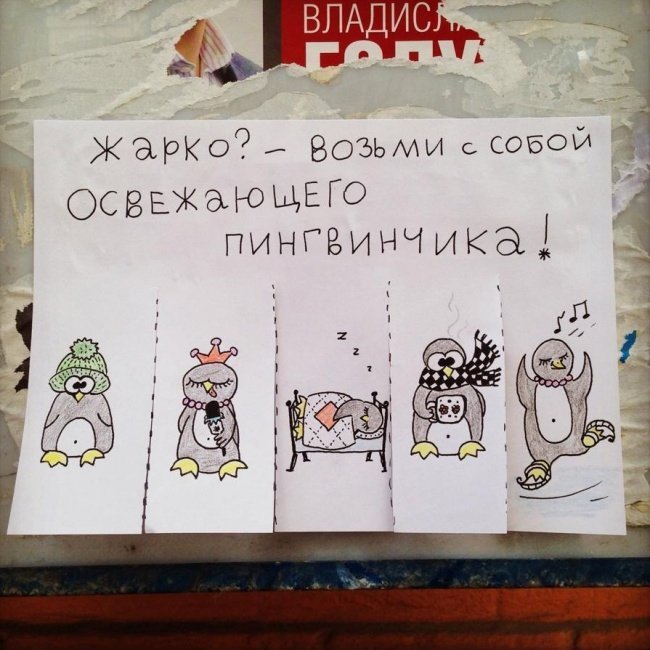 ВЛАДИСЛА
ГОЛУ
ЖАРКО? – ВОЗЬМИ С СОБОЙ
ОСВЕЖАЮЩЕГО
ПИНГВИНЧИКА!
z
z
z